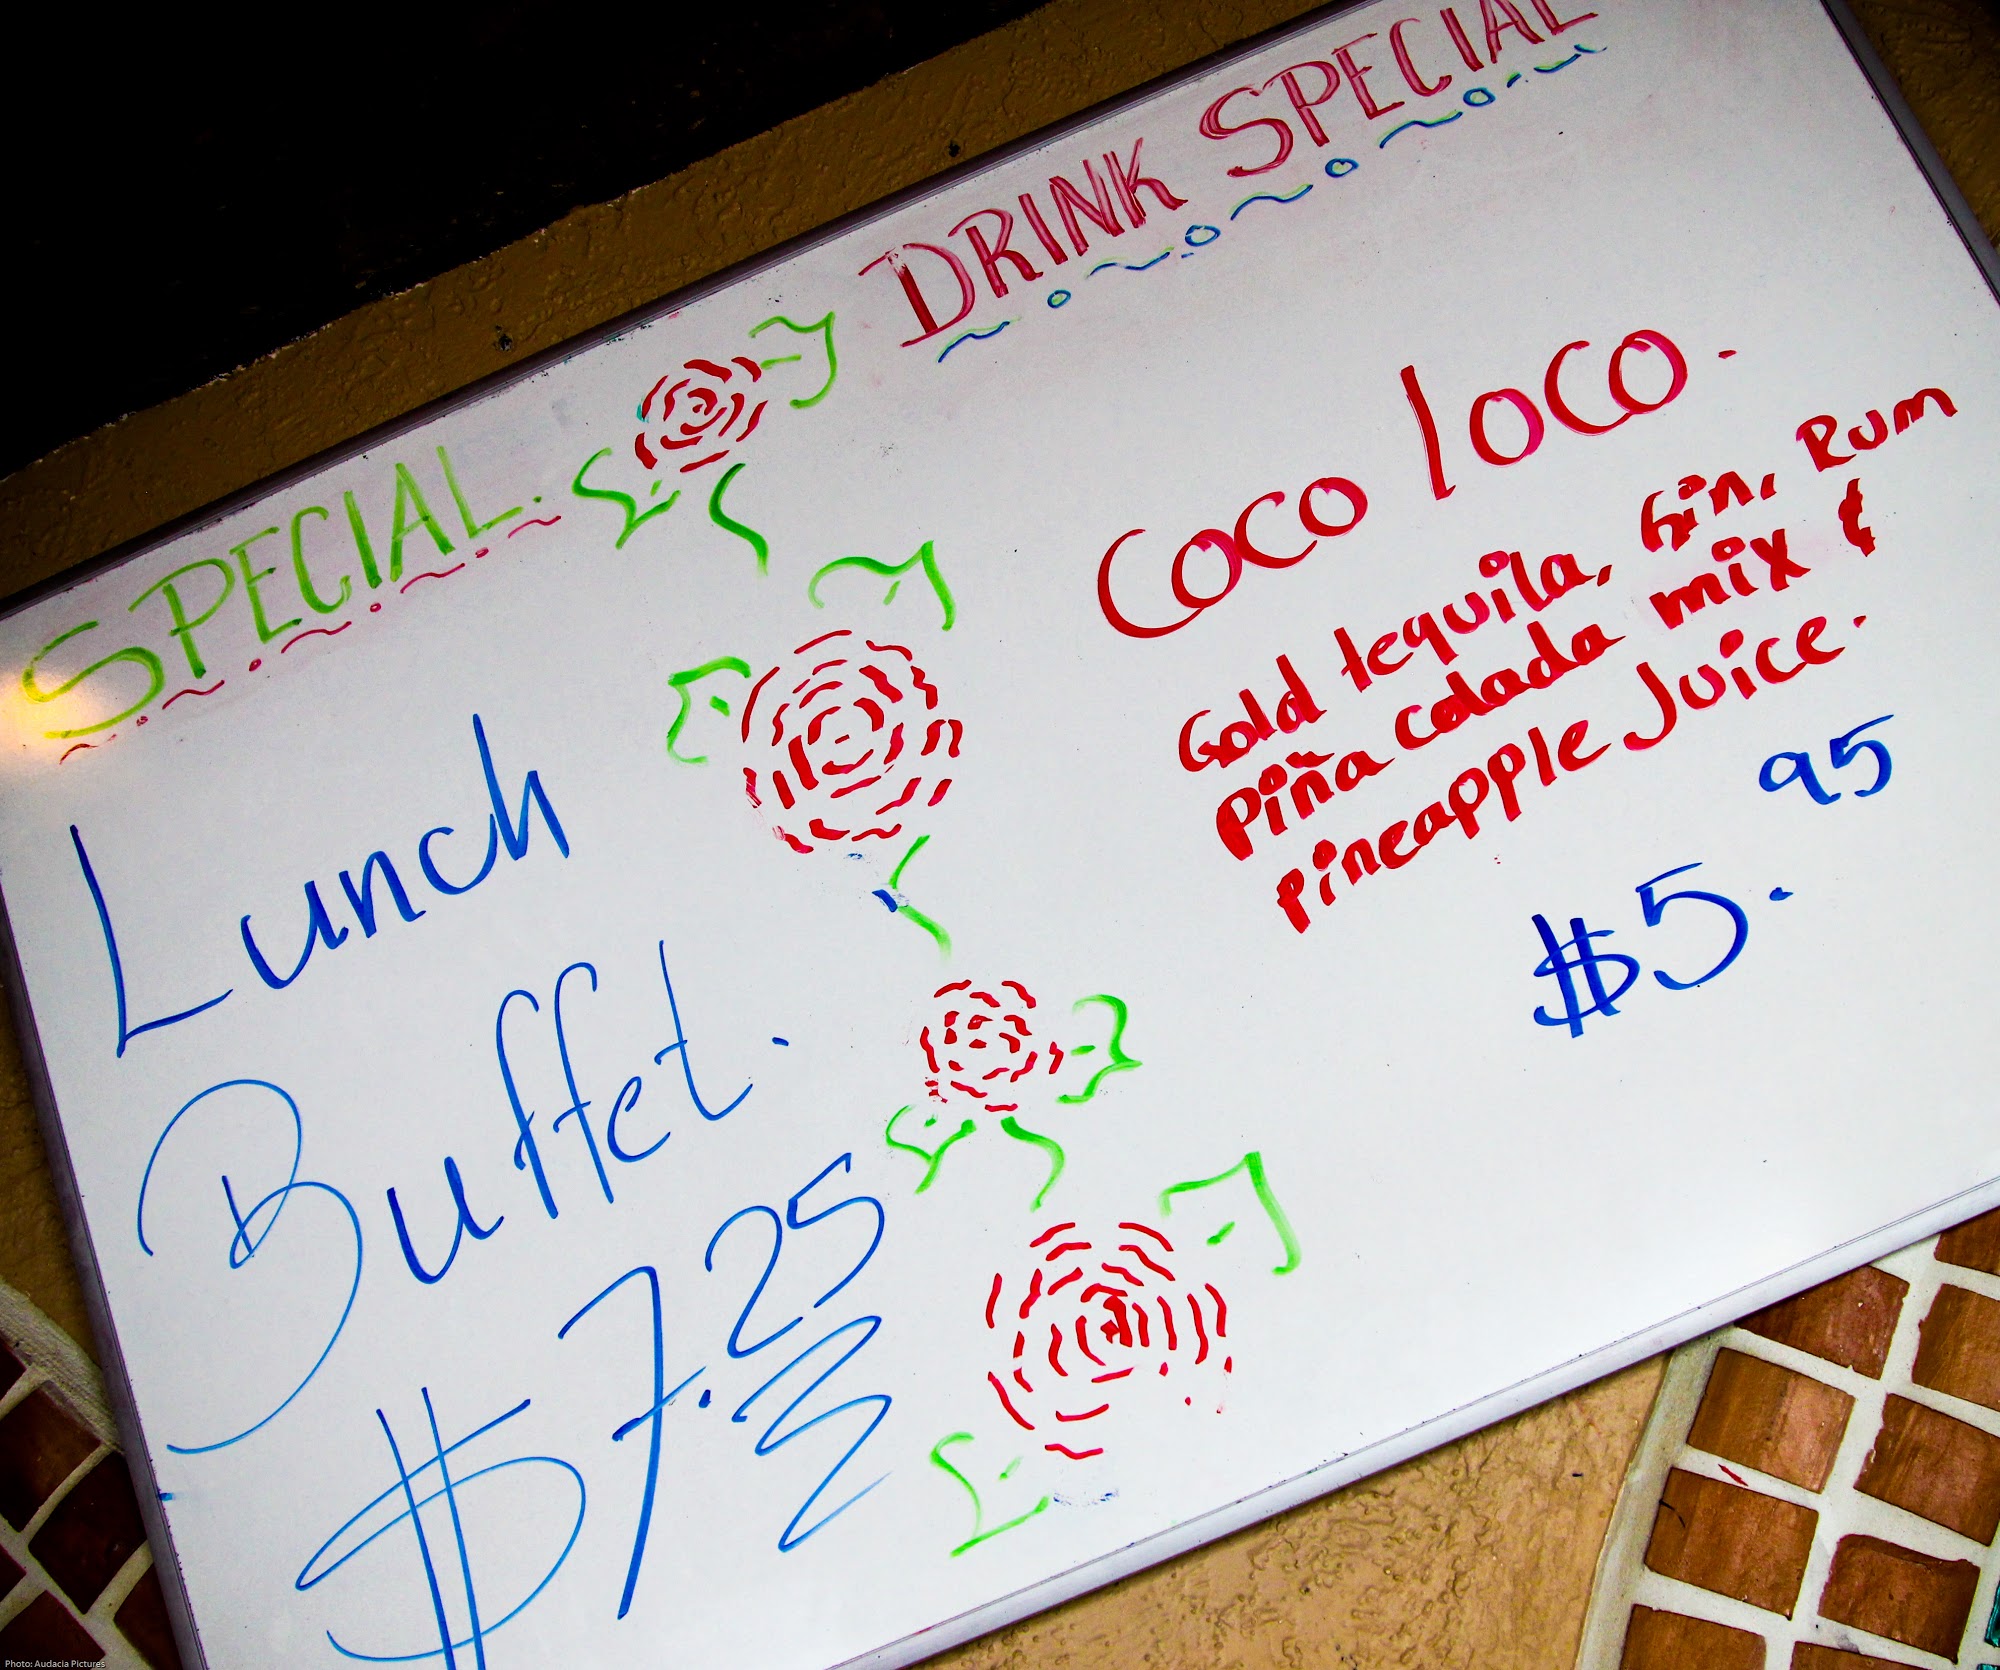 SPECIAL.
Lunch
Buffet.
$7.25
DRINK SPECIAL
Coco loco.
Gold tequila, Gin, Rum
piña colada mix &
pineapple Juice.
$5.95
Photo: Audacia Pictures